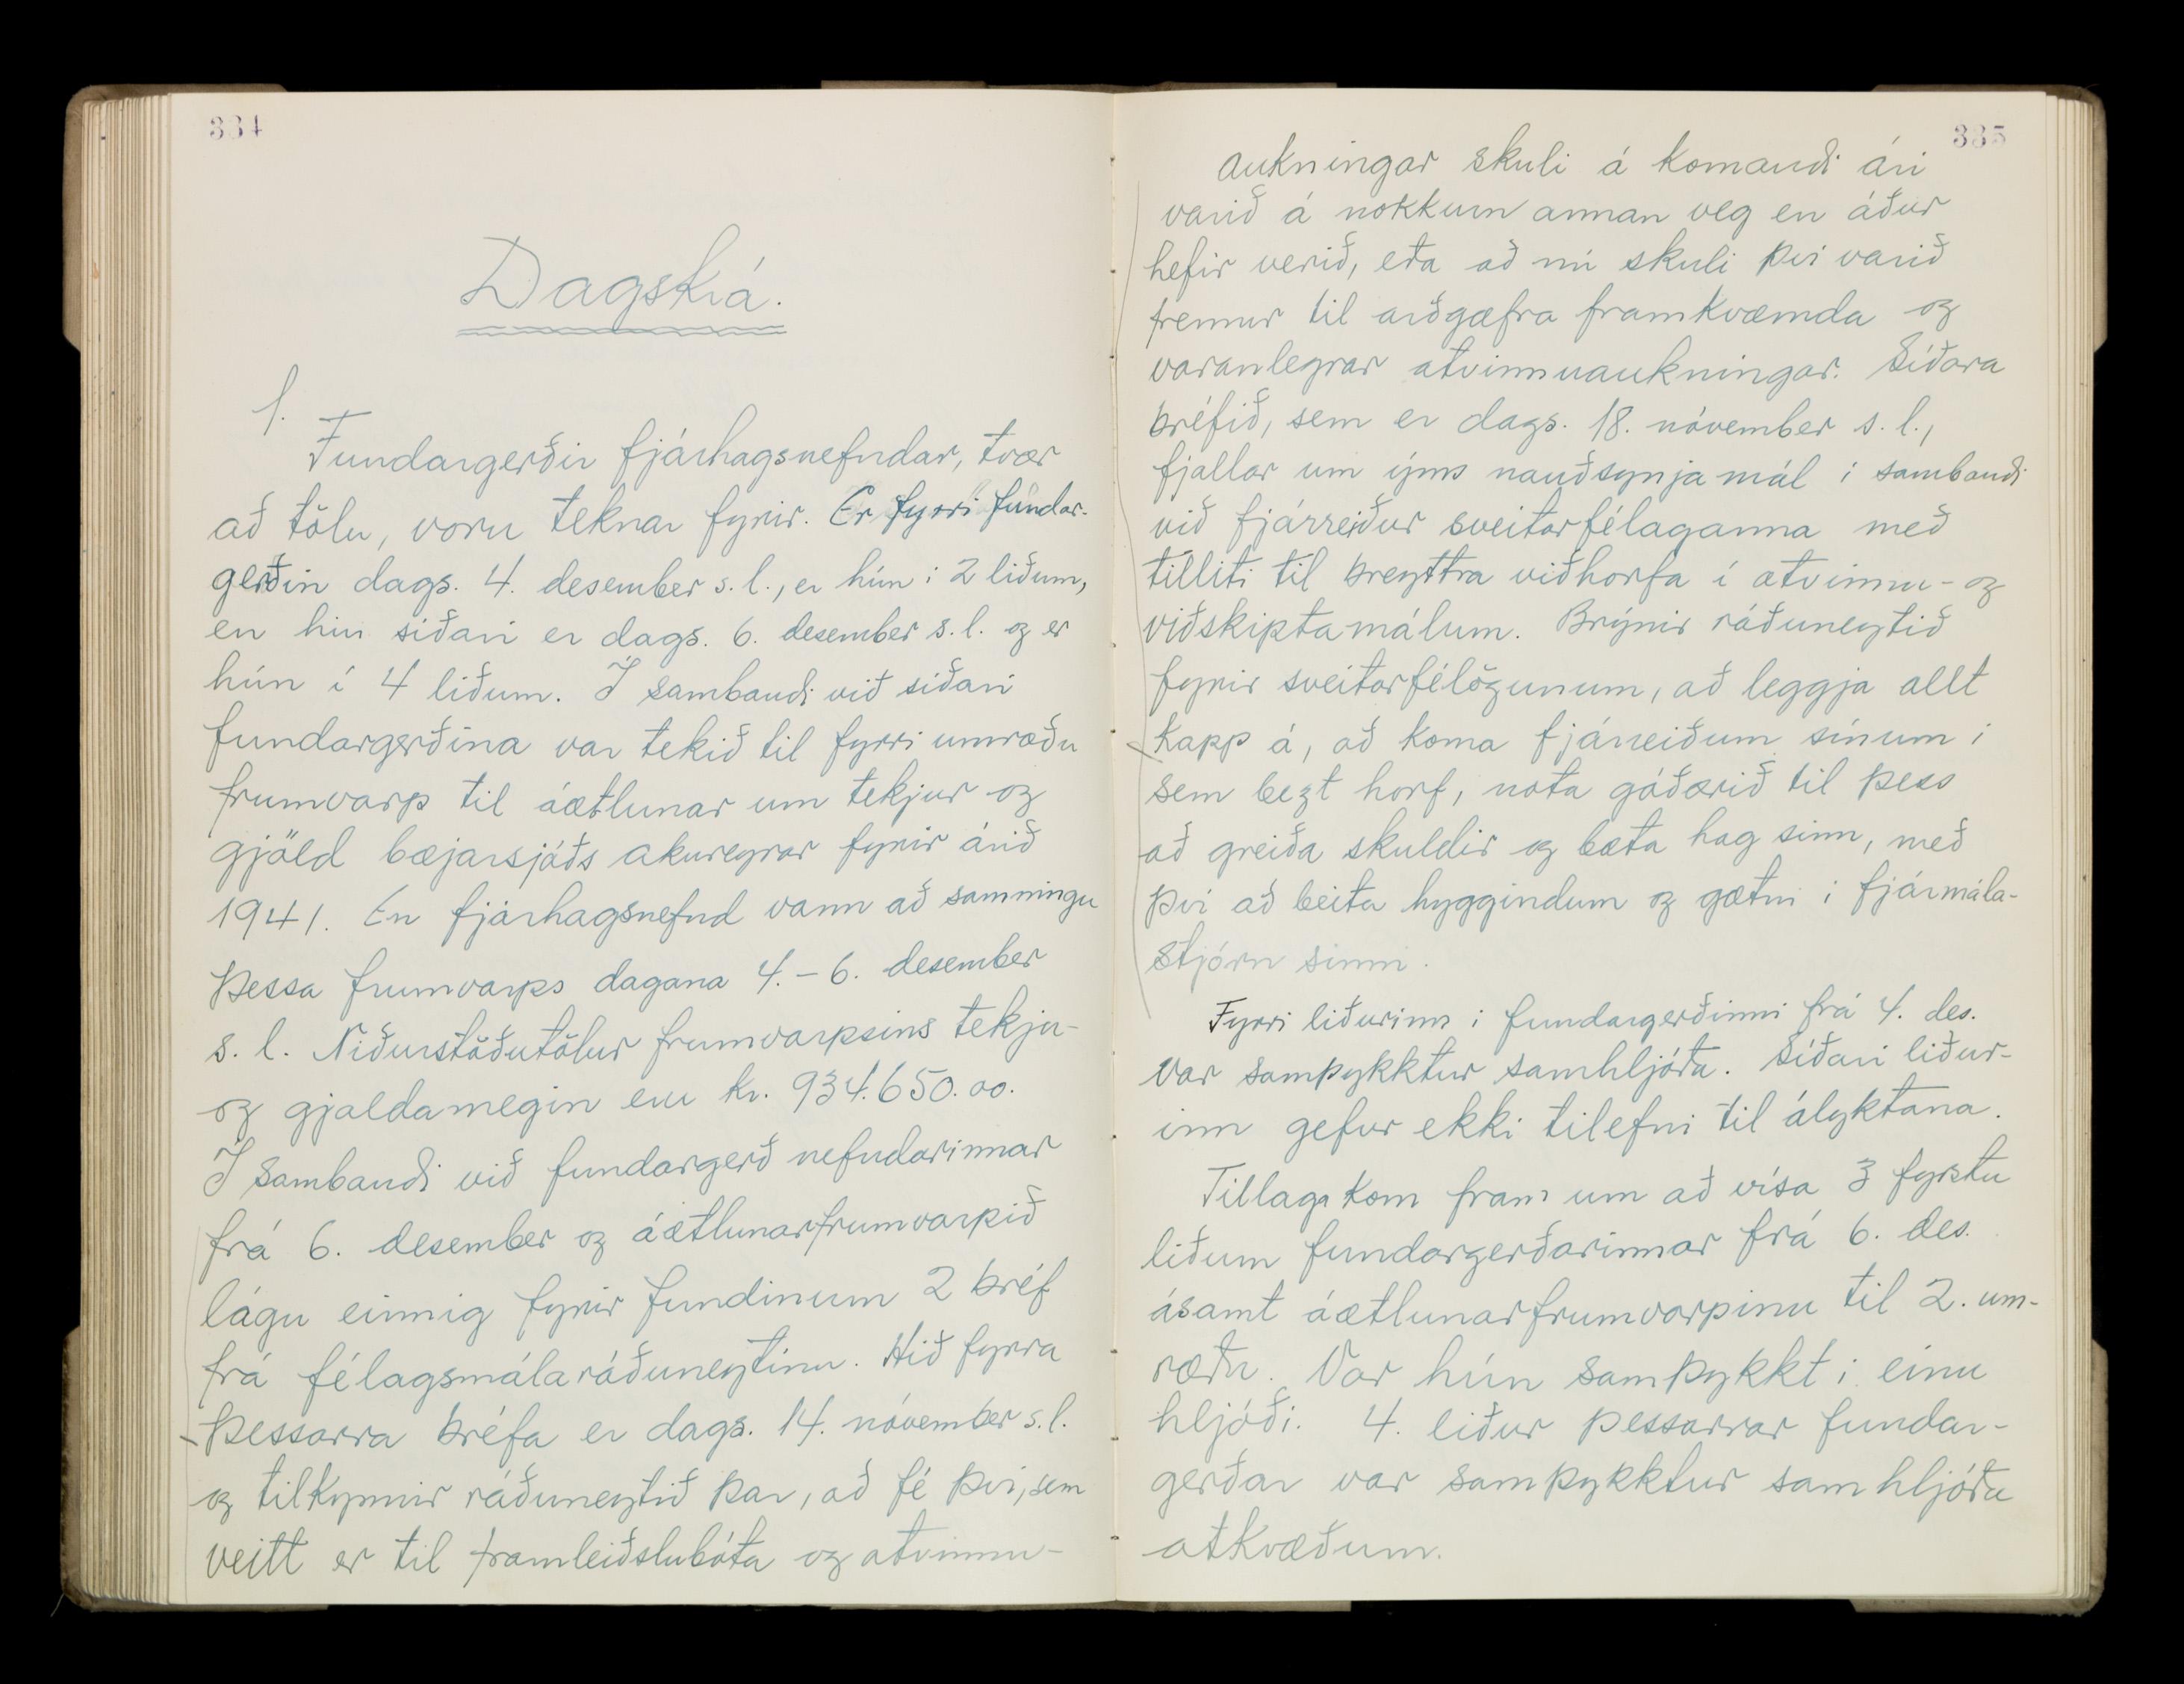 334
Dagskrá.
1.
Fundargerðir fjárhagsnefndar, tvær
að tölu, voru teknar fyrir. Er fyrri fundar-
gerðin dags. 4. desember s.l., er hún i 2 liðum,
en hin siðari er dags. 6. desember s.l. og er
hún í 4 liðum. Í sambandi við siðari
fundargerðina var tekið til fyrri umræðu
frumvarp til áætlunar um tekjur og
gjöld bæjarsjóðs akureyrar fyrir árið
1941. En fjárhagsnefnd vann að samningu
þessa frumvarps dagana 4.-6. desember
s.l. Niðurstöðutölur frumvarpsins tekju-
og gjaldamegin eru kr. 934.650.00.
Í sambandi við fundargerð nefndarinnar
frá 6. desember og áætlunarfrumvarpið
lágu einnig fyrir fundinum 2 bréf
frá félagsmálaráðuneytinu. Hið fyrra
þessarra bréfa er dags. 14. nóvember s.l.
og tilkynnir ráðuneytið þar, að fé þvi, sem
veitt er til framleiðslubóta og atvinnu-
335
aukningar skuli á komandi ári
varið á nokkurn annan veg en áður
hefir verið, eða að nú skuli þvi varið
fremur til arðgæfra framkvæmda og
varanlegrar atvinnuaukningar. Síðara
bréfið, sem er dags. 18. nóvember s.l.,
fjallar um ýms nauðsynjamál i sambandi
við fjárreiður sveitarfélaganna með
tilliti til breyttra viðhorfa í atvinnu- og
viðskiptamálum. Brýnir ráðuneytið
fyrir sveitarfélögunum, að leggja allt
kapp á, að koma fjárreiðum sínum i
sem bezt horf, nota góðærið til þess
að greiða skuldir og bæta hag sinn, með
þvi að beita hyggindum og gætni i fjármála-
stjórn sinni.
Fyrri liðurinn i fundargerðinni frá 4. des.
var samþykktur samhljóða. Síðari liður-
inn gefur ekki tilefni til ályktana.
Tillaga kom fram um að vísa 3 fyrstu
liðum fundargerðarinnar frá 6. des.
ásamt áætlunarfrumvarpinu til 2. um-
ræðu. Var hún samþykkt i einu
hljóði. 4. liður þessarrar fundar-
gerðar var samþykktur samhljóða
atkvæðum.